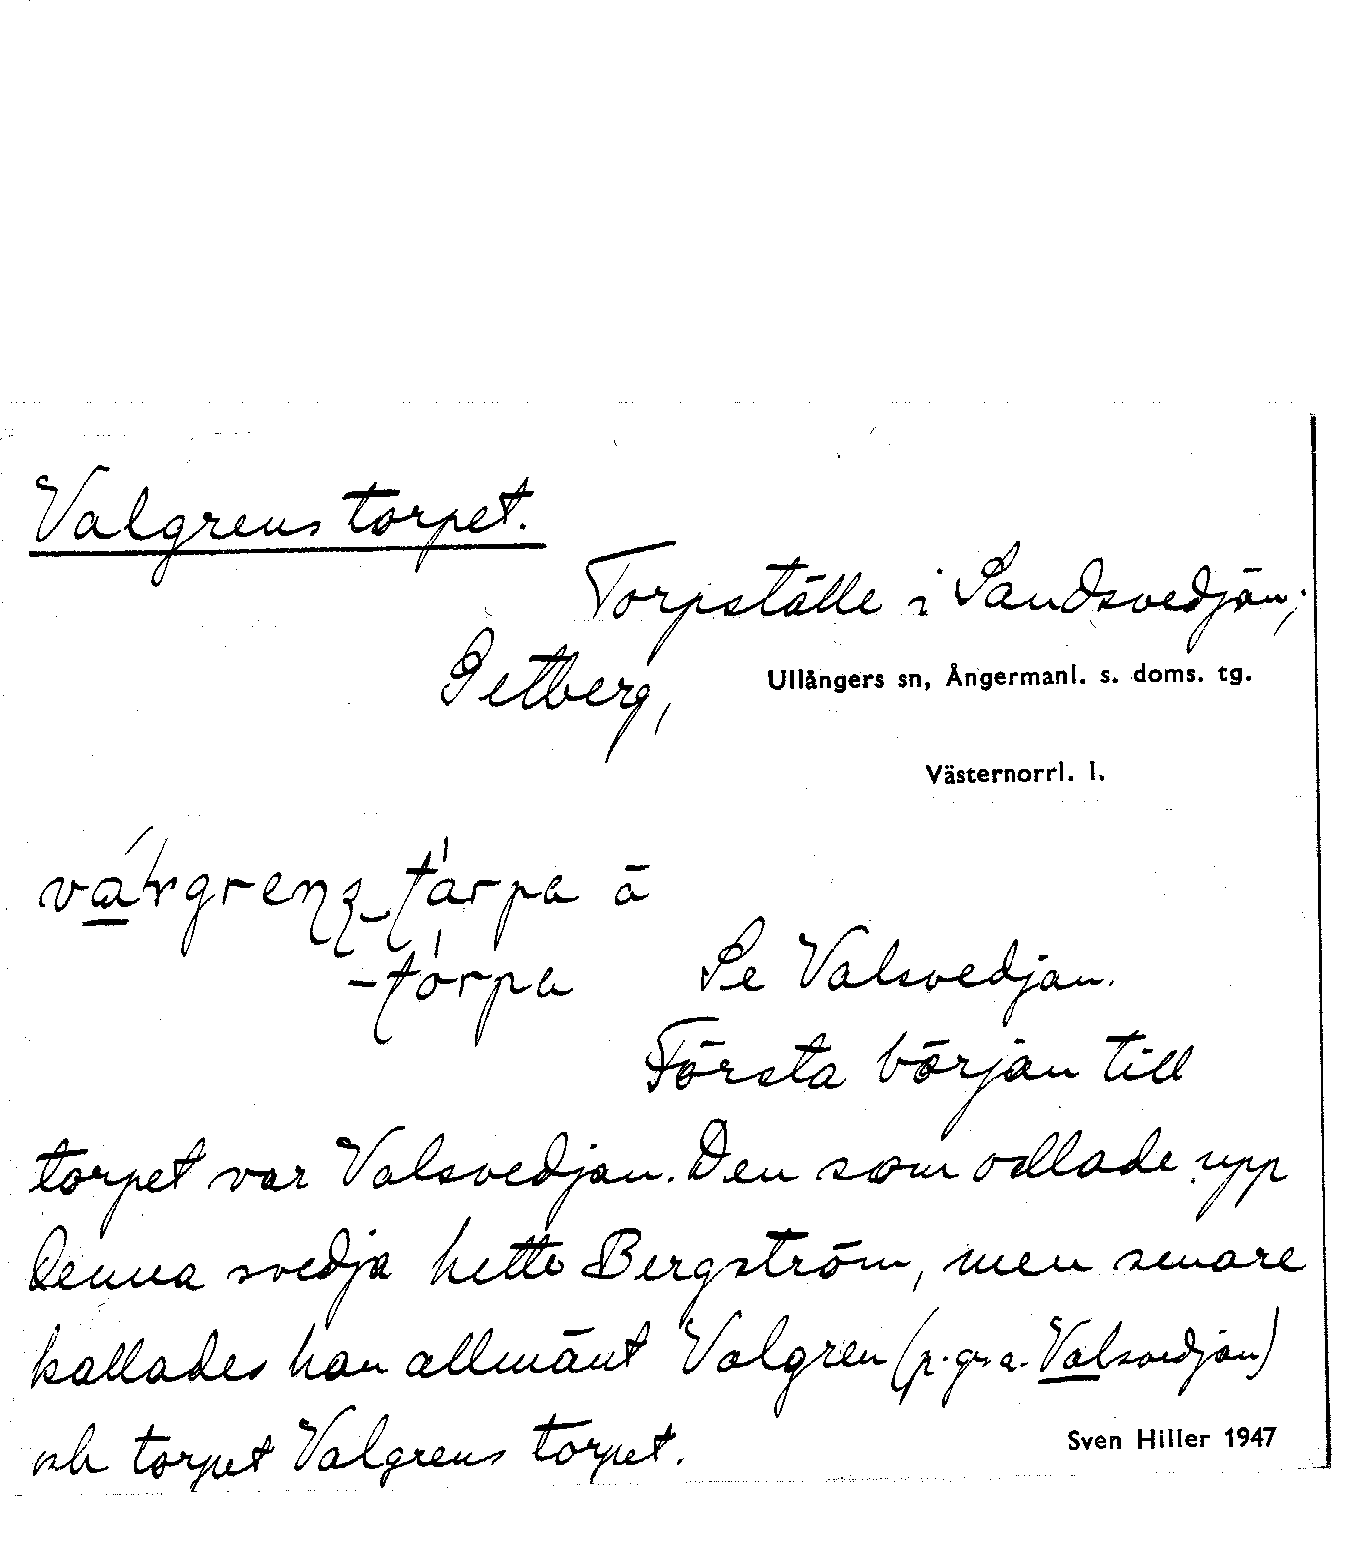 Valgrens torpet.
Torpställe i Sandsvedjan,
Getberg, Ullångers sn, Ångermanl. s. doms. tg.
Västernorrl. l.
-tórpa Se Valsvedjan.
Första början till
torpet var Valsvedjan. Den som odlade upp
denna svedja hette Bergström, men senare
kallades han allmänt Valgren (p.g.a. Valsvedjan)
och torpet Valgrens torpet.
Sven Hiller 1947